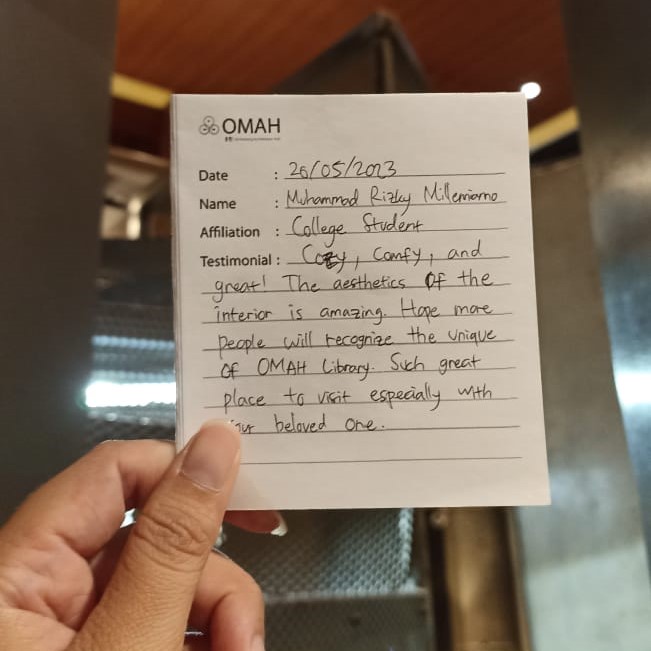 OMAH
Date : 26/05/2023
Name : Muhammad Rizky Milleniarno
Affiliation : College Student
Testimonial : Cozy, Comfy, and
great! The aesthetics of the
interior is amazing. Hope more
people will recognize the unique
of OMAH Library. Such great
place to visit especially with
your beloved one.